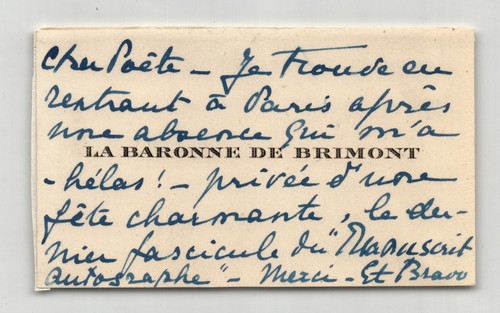 Cher Poête - Je trouve en
rentrant à Paris après
une absence qui m'a
LA BARONNE DE BRIMONT
- hélas! - privée d'une
fête charmante, le der-
nier fascicule du "Manuscrit
autographe" - Merci - Et Bravo